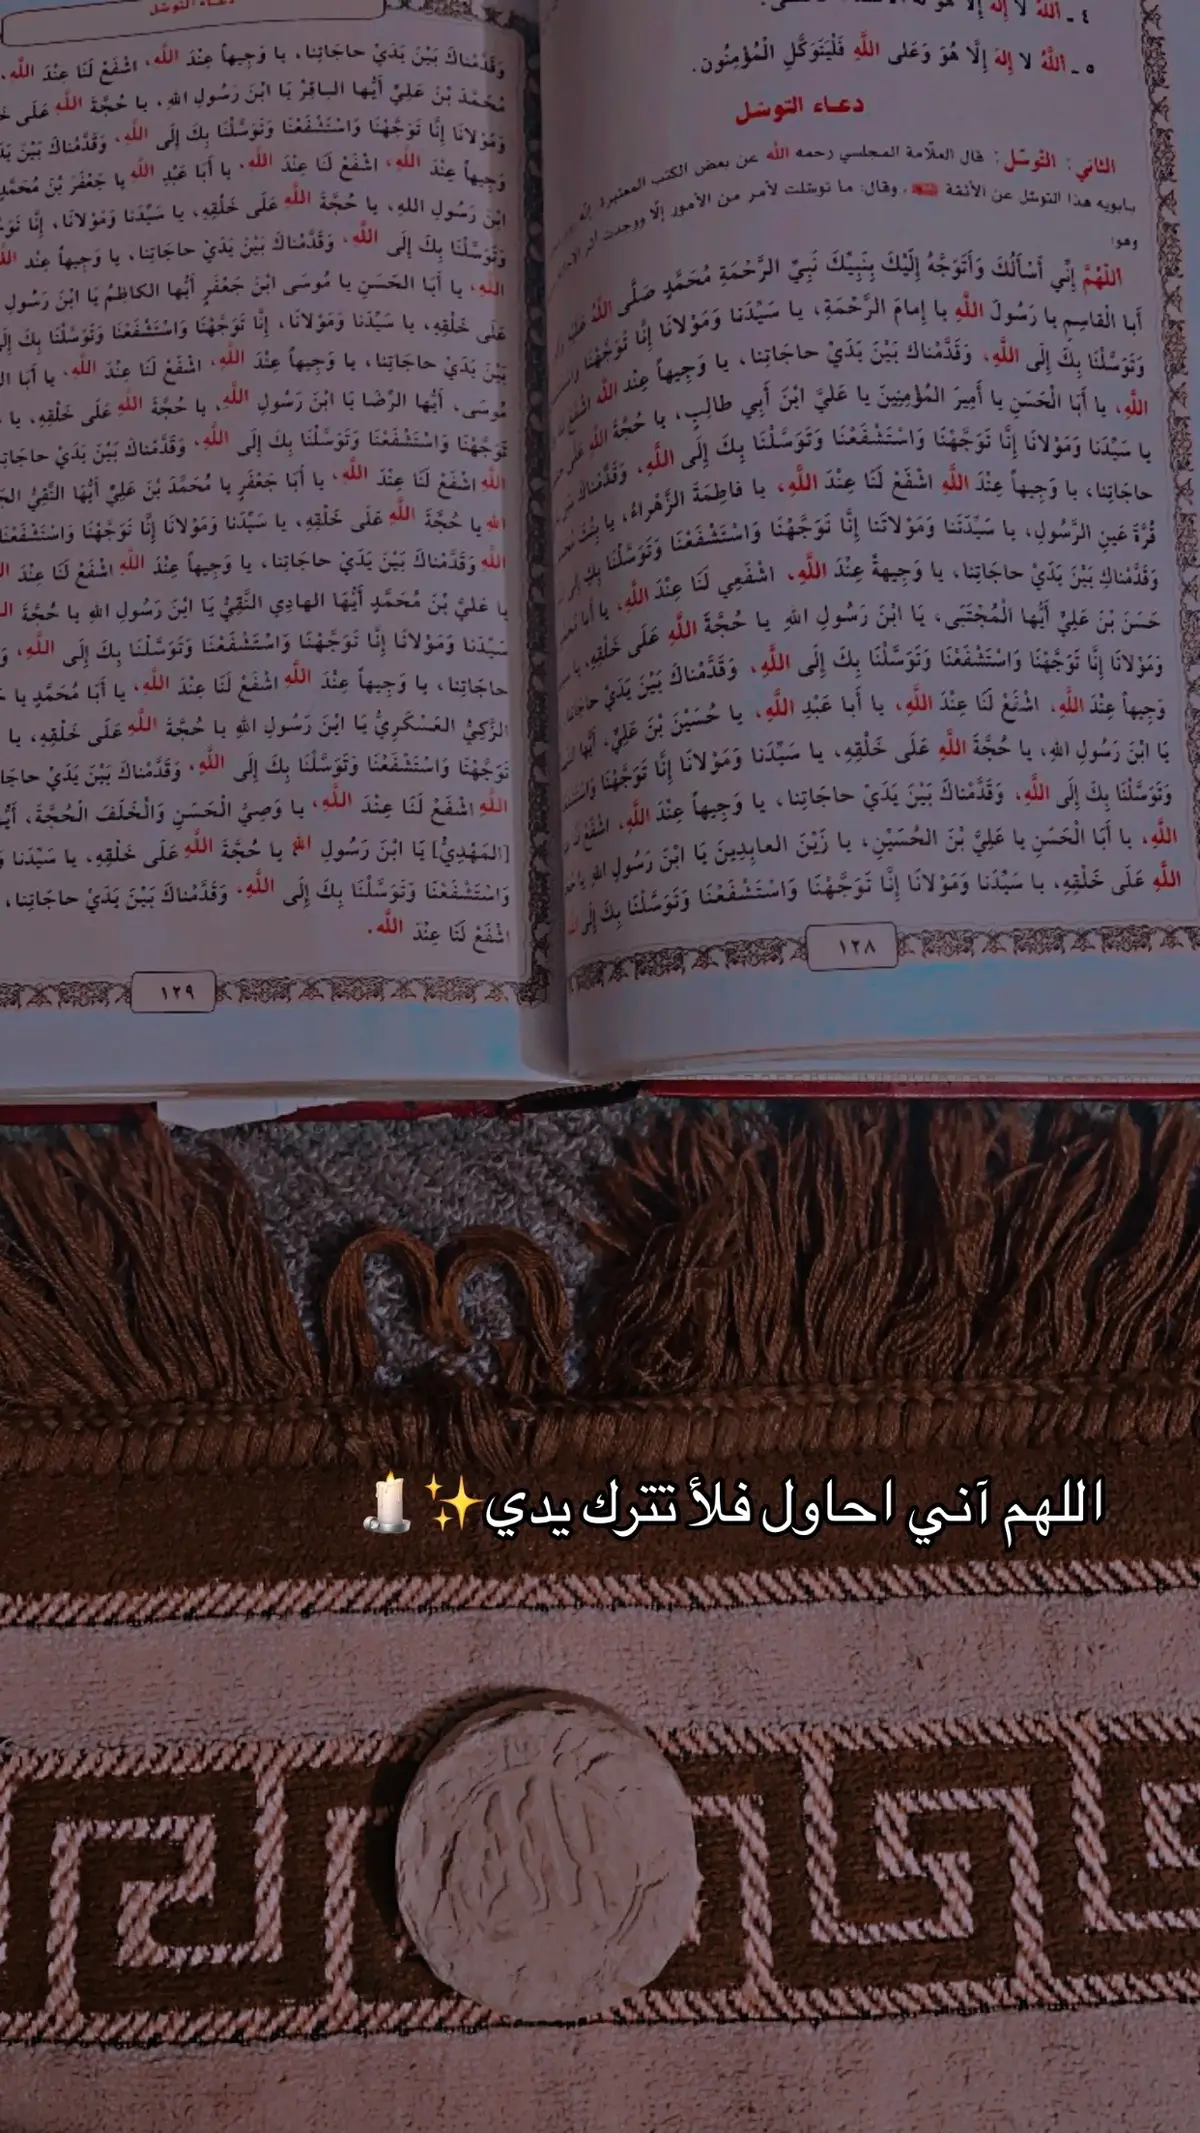 ٤ ـ اللَّهُ لا إِلهَ إِلَّا هُوَ
٥ ـ اللَّهُ لا إِلهَ إِلَّا هُوَ وَعَلى اللَّهِ فَلْيَتَوَكَّلِ الْمُؤْمِنُون.
دعـاء التوسّل
الثاني: التّوسّل: قال العلّامة المجلسي رحمه الله عن بعض الكتب المعتبرة
بـابويه هذا التوسّل عن الأئمّة وقال: ما توسّلت لأمر من الأمور إلّا ووجدت أثر
وهو:
اللّهُمَّ إِنّي أَسْأَلُكَ وَأَتَوَجَّهُ إِلَيْكَ بِنَبِيِّكَ نَبِيِّ الرَّحْمَةِ مُحَمَّدٍ صَلَّى اللَّهُ
أَبا الْقاسِمِ يا رَسُولَ اللَّهِ يا إِمامَ الرَّحْمَةِ، يا سَيِّدَنا وَمَوْلانَا إِنَّا تَوَجَّهْنا
وَتَوَسَّلْنا بِكَ إِلَى اللَّهِ، وَقَدَّمْناكَ بَيْنَ يَدَيْ حاجاتِنا، يا وَجِيهاً عِنْدَ اللَّهِ اشْفَعْ
اللَّهِ، يا أَبَا الْحَسَنِ يا أَمِيرَ المُؤْمِنِينَ يا عَلِيَّ ابْنَ أَبِي طالِبٍ، يا حُجَّةَ اللَّهِ عَلَى
يا سَيِّدَنا وَمَوْلانَا إِنَّا تَوَجَّهْنَا وَاسْتَشْفَعْنَا وَتَوَسَّلْنَا بِكَ إِلَى اللَّهِ، وَقَدَّمْناكَ
حاجاتِنا، يا وَجِيهاً عِنْدَ اللَّهِ اشْفَعْ لَنَا عِنْدَ اللَّهِ، يا فاطِمَةُ الزَّهْراءُ، يا بِنْتَ
قُرَّةَ عَينِ الرَّسُولِ، يا سَيِّدَتَنا وَمَوْلاتَنا إِنَّا تَوَجَّهْنَا وَاسْتَشْفَعْنَا وَتَوَسَّلْنَا بِكِ إِلَى
وَقَدَّمْناكِ بَيْنَ يَدَيْ حاجاتِنا، يا وَجِيهةً عِنْدَ اللَّهِ، اشْفَعِي لَنَا عِنْدَ اللَّهِ، يا أَبا
حَسَنَ بْنَ عَلِيٍّ أَيُّهَا الْمُجْتَبَى، يَا ابْنَ رَسُولِ اللهِ يا حُجَّةَ اللَّهِ عَلَى خَلْقِهِ، يا
وَمَوْلانَا إِنَّا تَوَجَّهْنَا وَاسْتَشْفَعْنَا وَتَوَسَّلْنَا بِكَ إِلَى اللَّهِ، وَقَدَّمْناكَ بَيْنَ يَدَيْ حاجاتِنا
وَجِيهاً عِنْدَ اللَّهِ، اشْفَعْ لَنَا عِنْدَ اللَّهِ، يا أَبا عَبْدِ اللَّهِ، يا حُسَيْنَ بْنَ عَلِيٍّ، أَيُّهَا
يَا ابْنَ رَسُولِ اللهِ، يا حُجَّةَ اللَّهِ عَلَى خَلْقِهِ، يا سَيِّدَنا وَمَوْلانَا إِنَّا تَوَجَّهْنَا
وَتَوَسَّلْنَا بِكَ إِلَى اللَّهِ، وَقَدَّمْناكَ بَيْنَ يَدَيْ حاجاتِنا، يا وَجِيهاً عِنْدَ اللَّهِ، اشْفَعْ
اللَّهِ، يا أَبَا الْحَسَنِ يا عَلِيَّ بْنَ الحُسَيْنِ، يا زَيْنَ العابِدِينَ يَا ابْنَ رَسُولِ اللهِ يا
اللَّهِ عَلَى خَلْقِهِ، يا سَيِّدَنا وَمَوْلانَا إِنَّا تَوَجَّهْنَا وَاسْتَشْفَعْنَا وَتَوَسَّلْنَا بِكَ إِلَى
١٢٨
دعـاء التوسّل
وَقَدَّمْناكَ بَيْنَ يَدَيْ حاجاتِنا، يا وَجِيهاً عِنْدَ اللَّهِ، اشْفَعْ لَنَا عِنْدَ اللَّهِ،
مُحَمَّدَ بْنَ عَلِيٍّ أَيُّها الباقِرُ يَا ابْنَ رَسُولِ اللهِ، يا حُجَّةَ اللَّهِ عَلَى
وَمَوْلانَا إِنَّا تَوَجَّهْنَا وَاسْتَشْفَعْنَا وَتَوَسَّلْنَا بِكَ إِلَى اللَّهِ، وَقَدَّمْناكَ بَيْنَ
وَجِيهاً عِنْدَ اللَّهِ، اشْفَعْ لَنَا عِنْدَ اللَّهِ، يا أَبَا عَبْدِ اللَّهِ يا جَعْفَرَ بْنَ مُحَمَّدٍ
ابْنَ رَسُولِ اللهِ، يا حُجَّةَ اللَّهِ عَلَى خَلْقِهِ، يا سَيِّدَنا وَمَوْلانَا، إِنَّا
وَتَوَسَّلْنَا بِكَ إِلَى اللَّهِ، وَقَدَّمْناكَ بَيْنَ يَدَيْ حاجاتِنا، يا وَجِيهاً عِنْد
اللَّهِ، يا أَبَا الحَسَنِ يا مُوسَى ابْنَ جَعْفَرٍ أَيُّها الكاظِمُ يَا ابْنَ رَسُولِ
عَلَى خَلْقِهِ، يا سَيِّدَنا وَمَوْلانَا، إِنَّا تَوَجَّهْنَا وَاسْتَشْفَعْنَا وَتَوَسَّلْنَا بِكَ
بَيْنَ يَدَيْ حاجاتِنا، يا وَجِيهاً عِنْدَ اللَّهِ، اشْفَعْ لَنَا عِنْدَ اللَّهِ، يا أَبَا
مُوسَى، أَيُّها الرِّضَا يَا ابْنَ رَسُولِ اللَّهِ، يا حُجَّةَ اللَّهِ عَلَى خَلْقِهِ، يا
تَوَجَّهْنَا وَاسْتَشْفَعْنَا وَتَوَسَّلْنَا بِكَ إِلَى اللَّهِ، وَقَدَّمْناكَ بَيْنَ يَدَيْ
اللَّهِ اشْفَعْ لَنَا عِنْدَ اللَّهِ، يا أَبا جَعْفَرٍ يا مُحَمَّدَ بْنَ عَلِيٍّ أَيُّها التَّقِيُّ
اللهِ يا حُجَّةَ اللَّهِ عَلَى خَلْقِهِ، يا سَيِّدَنا وَمَوْلانَا إِنَّا تَوَجَّهْنَا وَاسْتَشْفَعْنَا
اللَّهِ وَقَدَّمْناكَ بَيْنَ يَدَيْ حاجاتِنا، يا وَجِيهاً عِنْدَ اللَّهِ اشْفَعْ لَنَا عِنْدَ
يا عَلِيَّ بْنَ مُحَمَّدٍ أَيُّها الهادِي النَّقِيُّ يَا ابْنَ رَسُولِ اللهِ يا حُجَّةَ
سَيِّدَنا وَمَوْلانَا إِنَّا تَوَجَّهْنَا وَاسْتَشْفَعْنَا وَتَوَسَّلْنَا بِكَ إِلَى اللَّهِ،
حاجاتِنا، يا وَجِيهاً عِنْدَ اللَّهِ اشْفَعْ لَنَا عِنْدَ اللَّهِ، يا أَبَا مُحَمَّدٍ يا
الزَّكِيُّ العَسْكَرِيُّ يَا ابْنَ رَسُولِ اللهِ يا حُجَّةَ اللَّهِ عَلَى خَلْقِهِ، يا
تَوَجَّهْنَا وَاسْتَشْفَعْنَا وَتَوَسَّلْنَا بِكَ إِلَى اللَّهِ، وَقَدَّمْناكَ بَيْنَ يَدَيْ
اللَّهِ اشْفَعْ لَنَا عِنْدَ اللَّهِ، يا وَصِيَّ الْحَسَنِ وَالْخَلَفَ الْحُجَّةَ،
[المَهْدِيُّ] يَا ابْنَ رَسُولِ اللهِ يا حُجَّةَ اللَّهِ عَلَى خَلْقِهِ، يا سَيِّدَنا
وَاسْتَشْفَعْنَا وَتَوَسَّلْنَا بِكَ إِلَى اللَّهِ، وَقَدَّمْناكَ بَيْنَ يَدَيْ حاجاتِنا،
اشْفَعْ لَنَا عِنْدَ اللَّهِ.
١٢٩
اللهم آني احاول فلأ تترك يدي✨🕯️